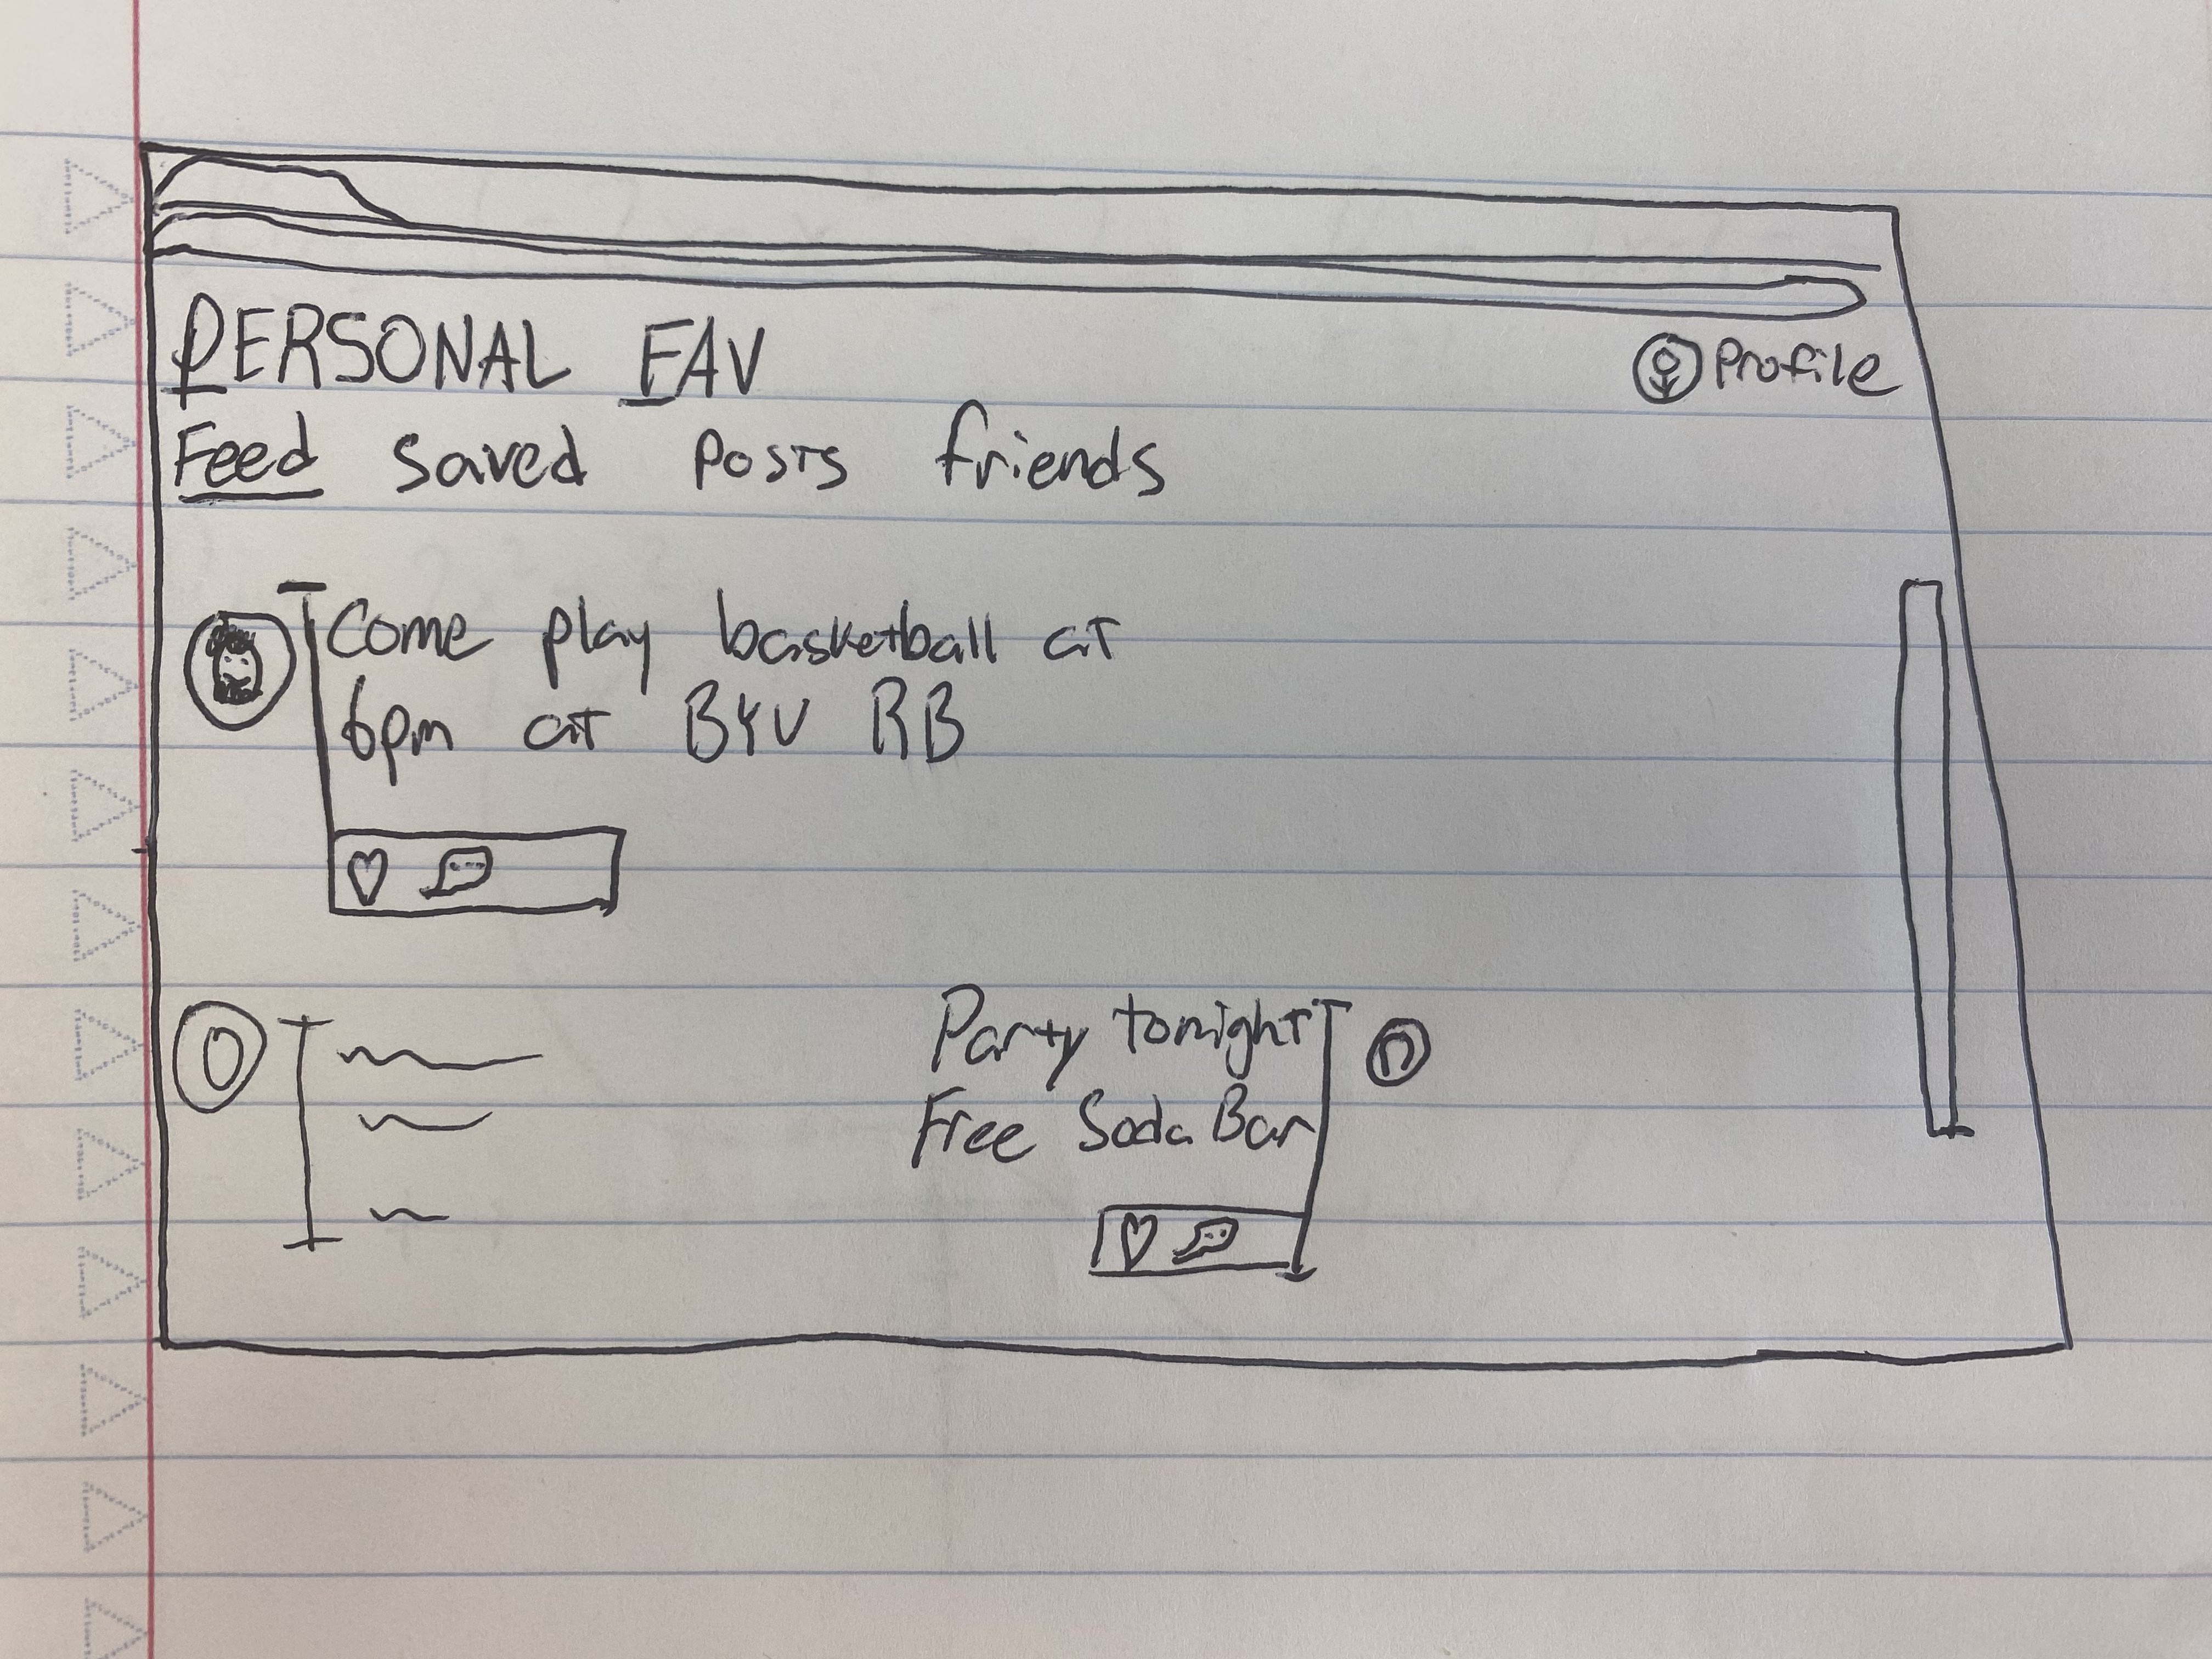 PERSONAL FAV
Profile
Feed saved posts friends
Come play basketball at
6pm at BYU RB
Party tonight
Free Soda Bar